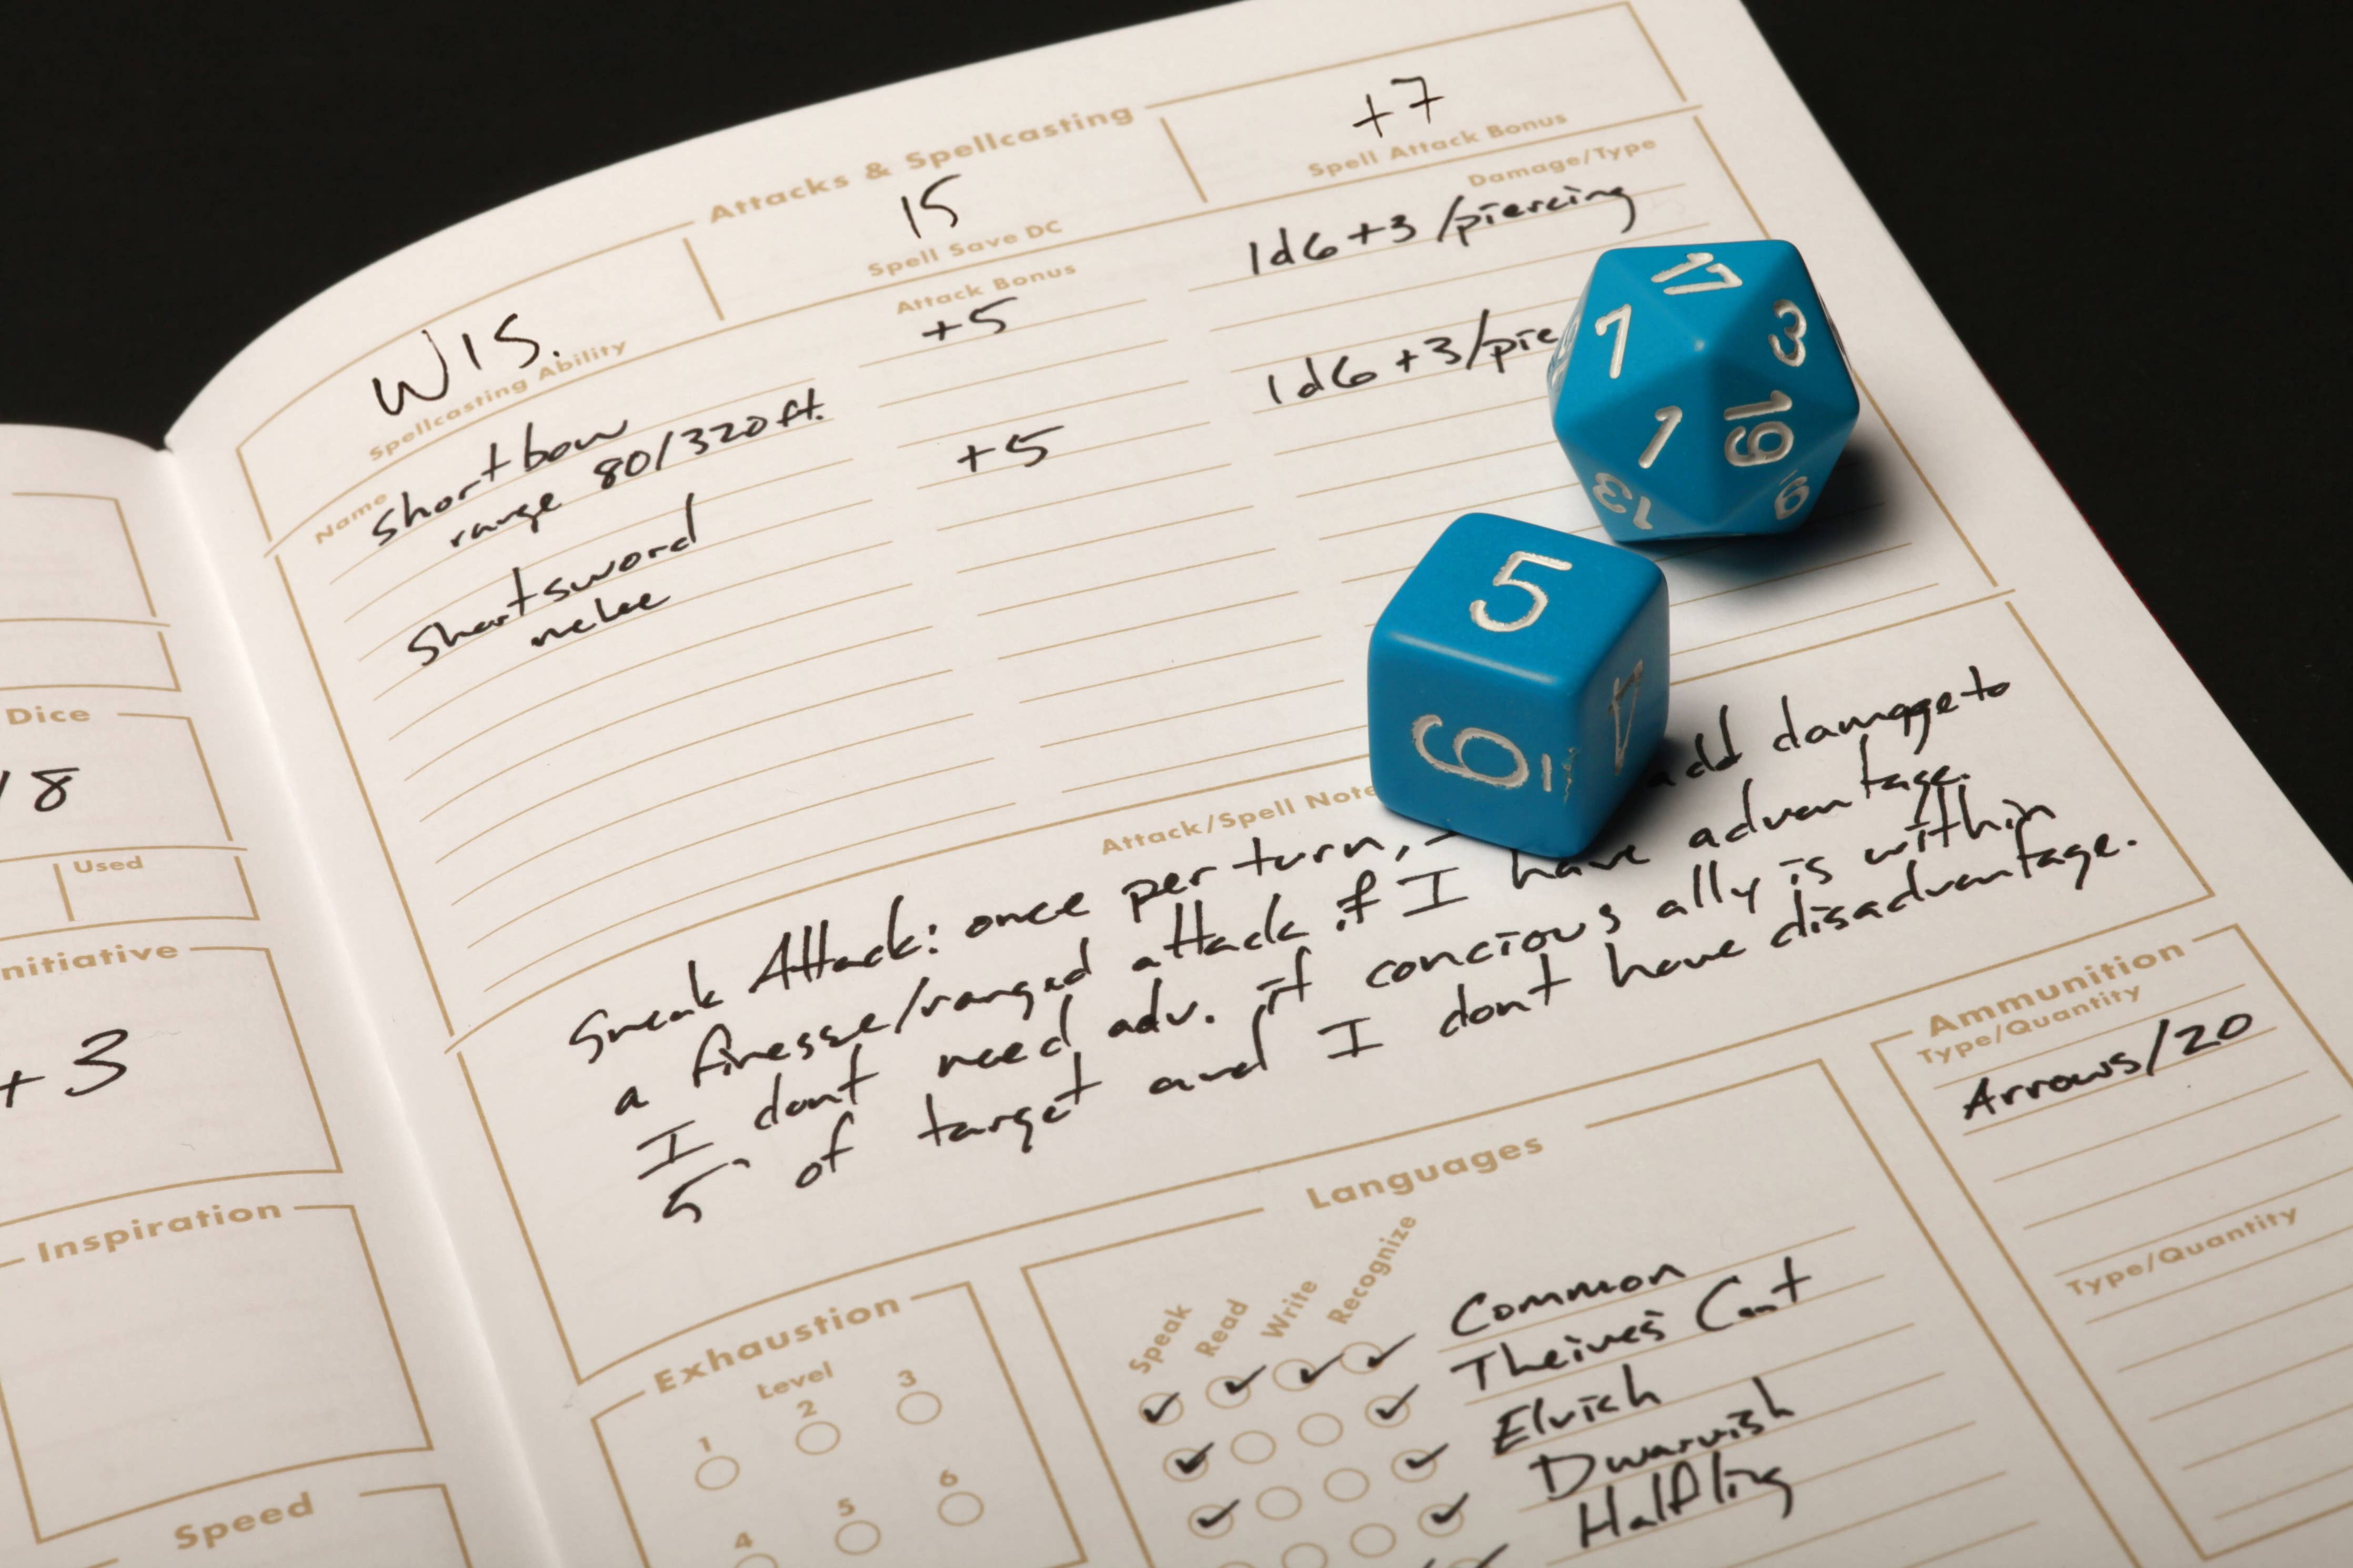 Attacks & Spellcasting
WIS.
Spellcasting Ability
15
Spell Save DC
+7
Spell Attack Bonus
Name
Attack Bonus
Damage/Type
Shortbow
+5
1d6+3/piercing
range 80/320ft.
Shortsword
+5
1d6+3/pie
melee
17
7
3
1
19
13
9
5
6
4
Attack/Spell Note
Sneak Attack: once per turn, add damage to
a finesse/ranged attack if I have advantage.
I dont need adv. if concious ally is within
5' of target and I dont have disadvantage.
Dice
18
Used
nitiative
+3
Inspiration
Speed
Exhaustion
Level
1
2
3
4
5
6
Languages
Speak
Read
Write
Recognize
Common
Theives Cant
Elvish
Dwarvish
Halfling
Ammunition
Type/Quantity
Arrows/20
Type/Quantity